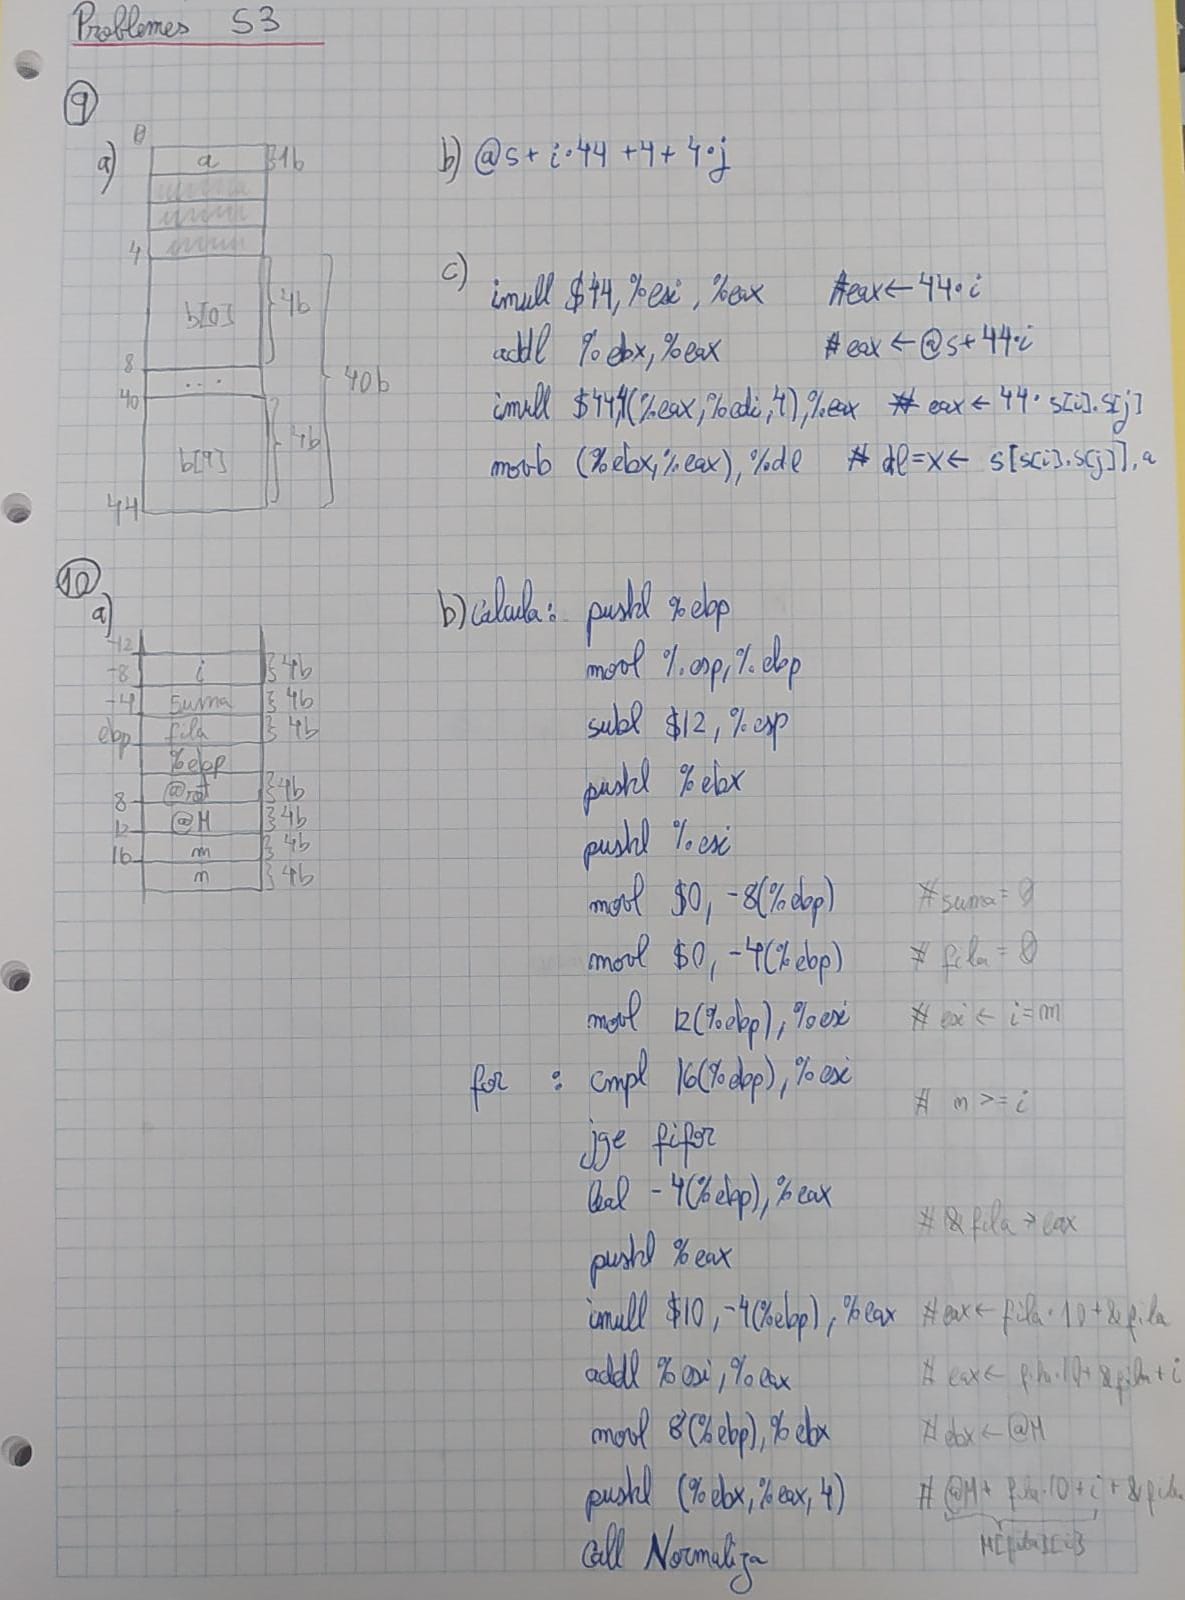 Problemes S3
9
a)
0
a }1b
4
b[0] }4b
8
... 40b
40
b[9] }4b
44
b) @s + i·44 + 4 + 4·j
c)
imull $44, %esi, %eax #eax ← 44·i
addl %ebx, %eax # eax ← @s + 44·i
imull $44, 4(%eax, %edi, 4), %eax # eax ← 44· s[i].s[j]
movb (%ebx, %eax), %dl # dl = x ← s[s[i].s[j]].a
10
a)
-12
-8 i }4b
-4 suma }4b
ebp fila }4b
%ebp
8 @ret }4b
12 @M }4b
16 m }4b
n }4b
b) Calcula: pushl %ebp
movl %esp, %ebp
subl $12, %esp
pushl %ebx
pushl %esi
movl $0, -8(%ebp) # suma = 0
movl $0, -4(%ebp) # fila = 0
movl 12(%ebp), %esi # esi ← i = m
for : cmpl 16(%ebp), %esi
# n >= i
jge fifor
leal -4(%ebp), %eax
# &fila → eax
pushl %eax
imull $10, -4(%ebp), %eax # eax ← fila·10 + &fila
addl %esi, %eax # eax ← fila·10 + &fila + i
movl 8(%ebp), %ebx # ebx ← @M
pushl (%ebx, %eax, 4) # @M + fila·10 + i + &fila
M[fila][i]
call Normaliza